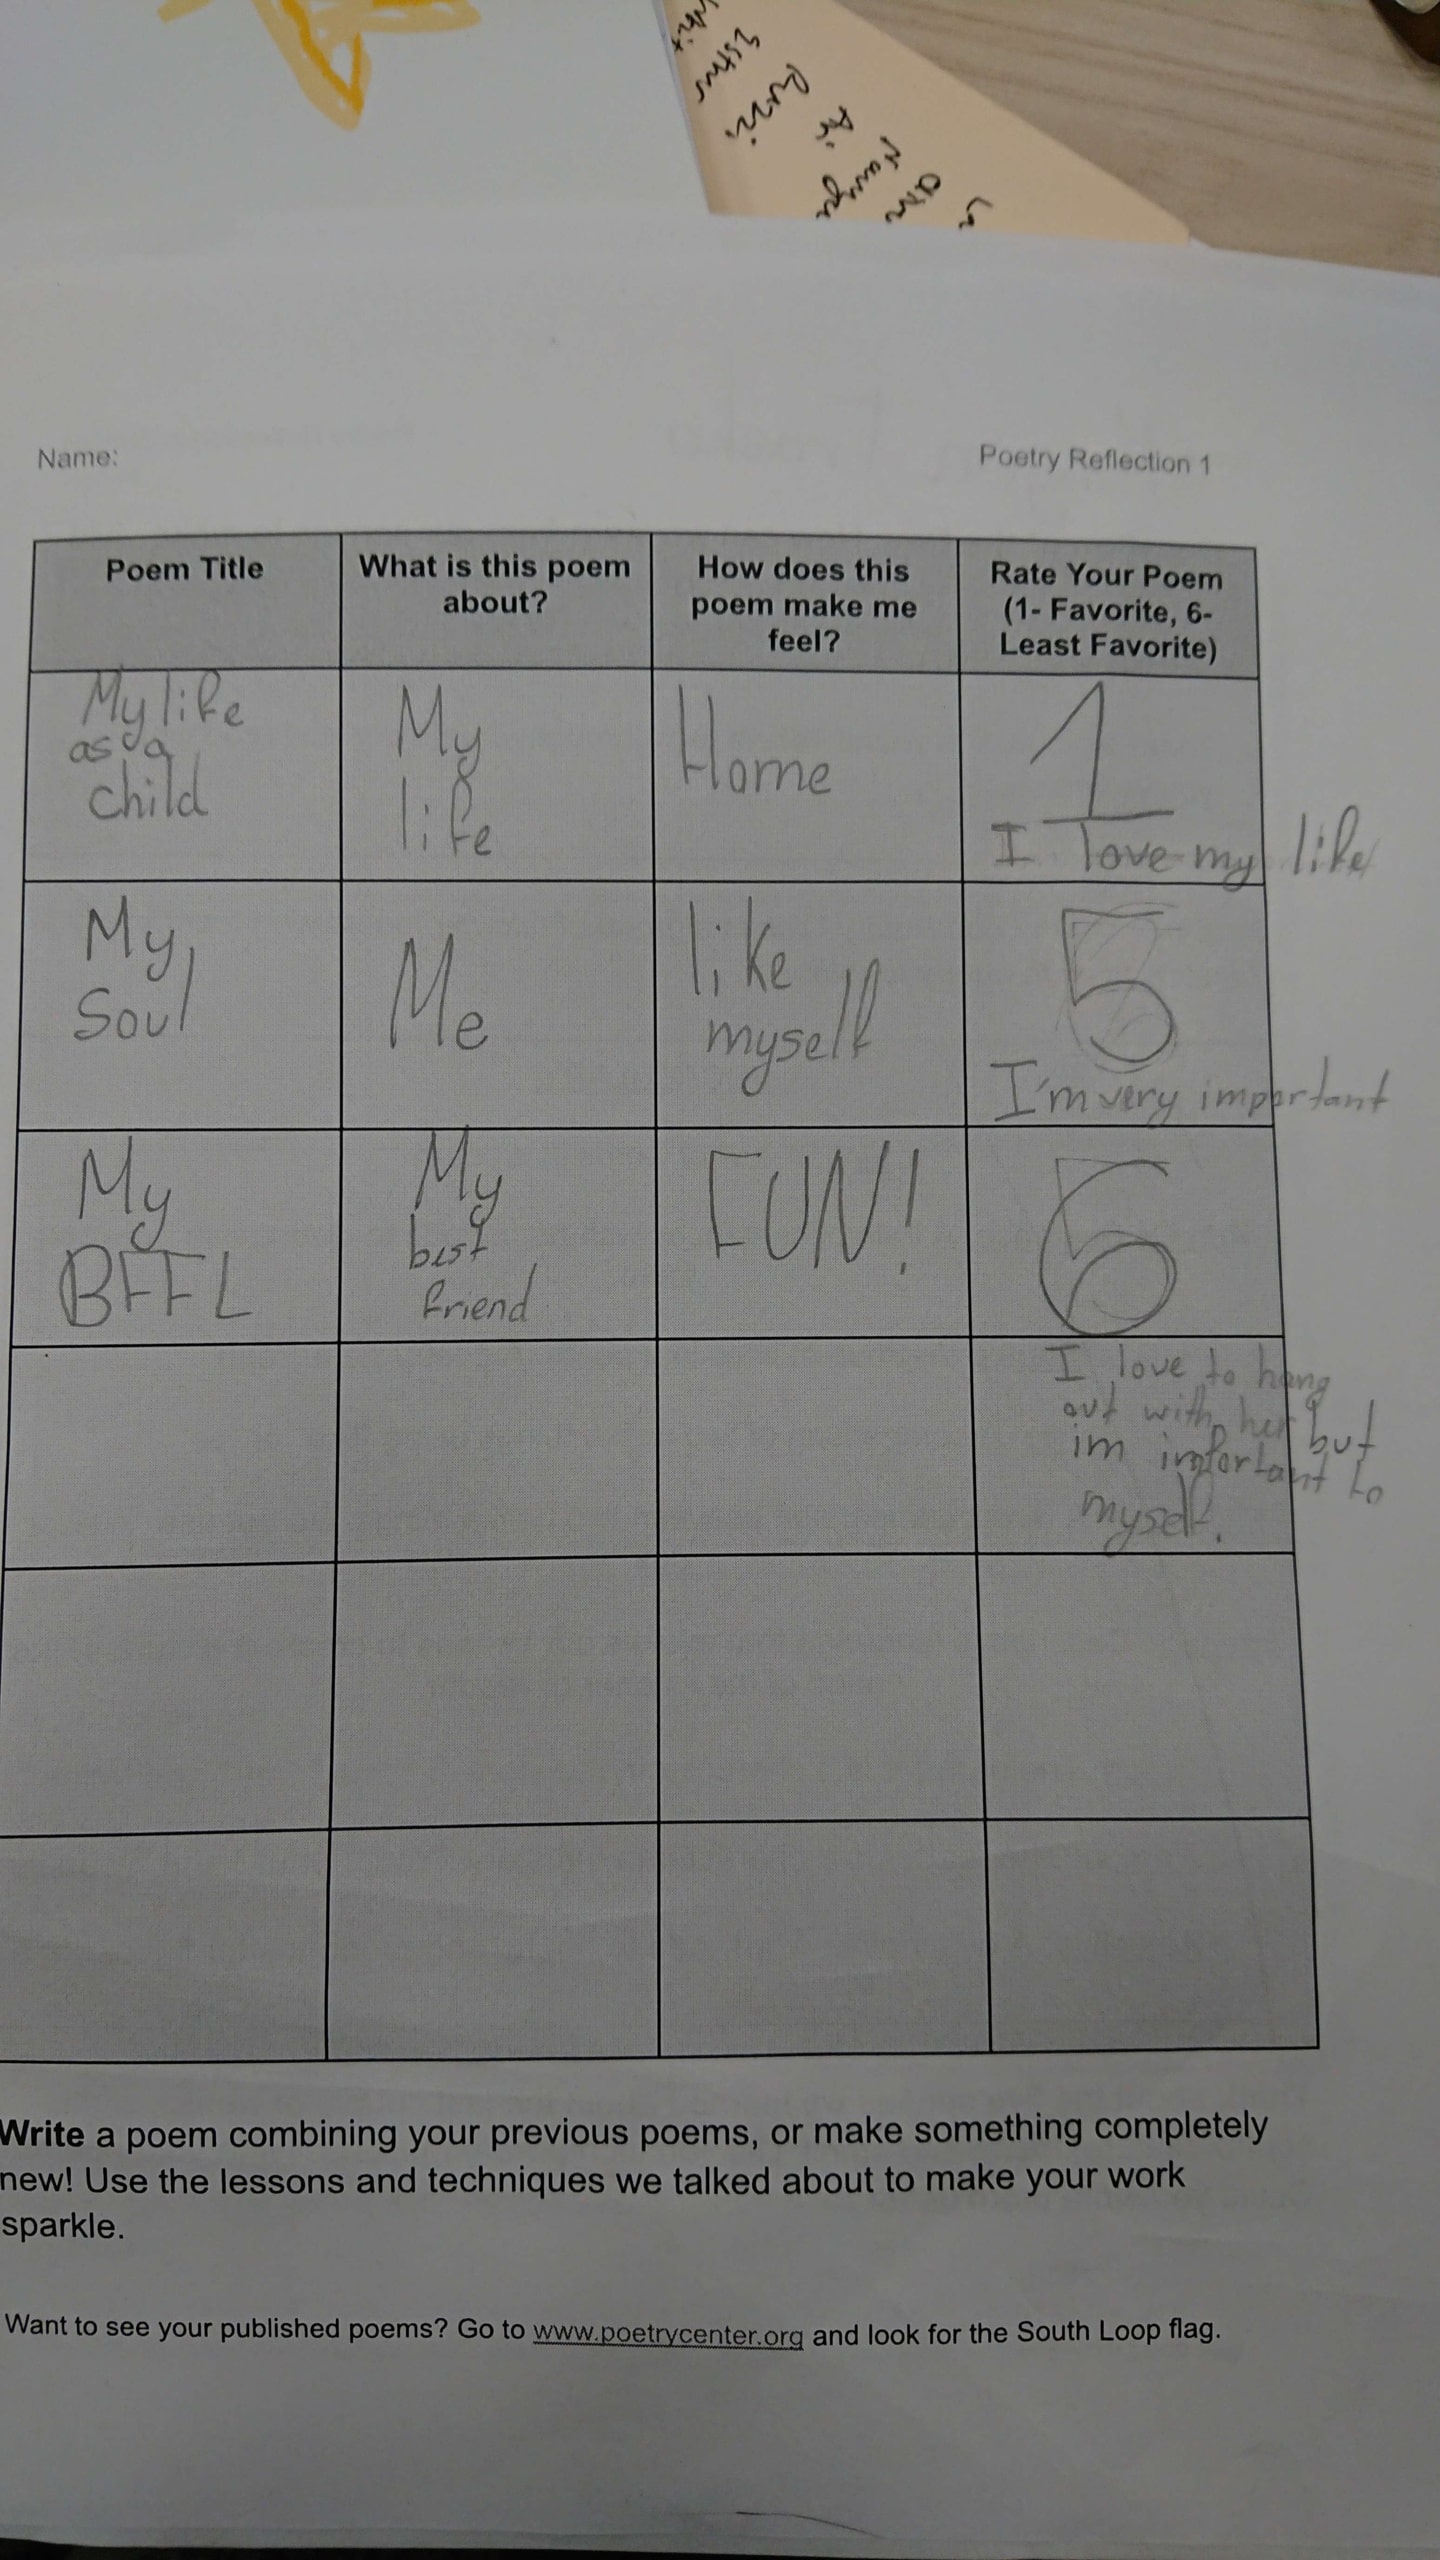 Name:
Poetry Reflection 1
Poem Title
What is this poem
about?
How does this
poem make me
feel?
Rate Your Poem
(1- Favorite, 6-
Least Favorite)
My life
as a
child
My
life
Home
1
I love my life
My
Soul
Me
like
myself
5
I'm very important
My
BFFL
My
best
friend
FUN!
6
I love to hang
out with her but
im important to
myself.
Write a poem combining your previous poems, or make something completely
new! Use the lessons and techniques we talked about to make your work
sparkle.
Want to see your published poems? Go to www.poetrycenter.org and look for the South Loop flag.